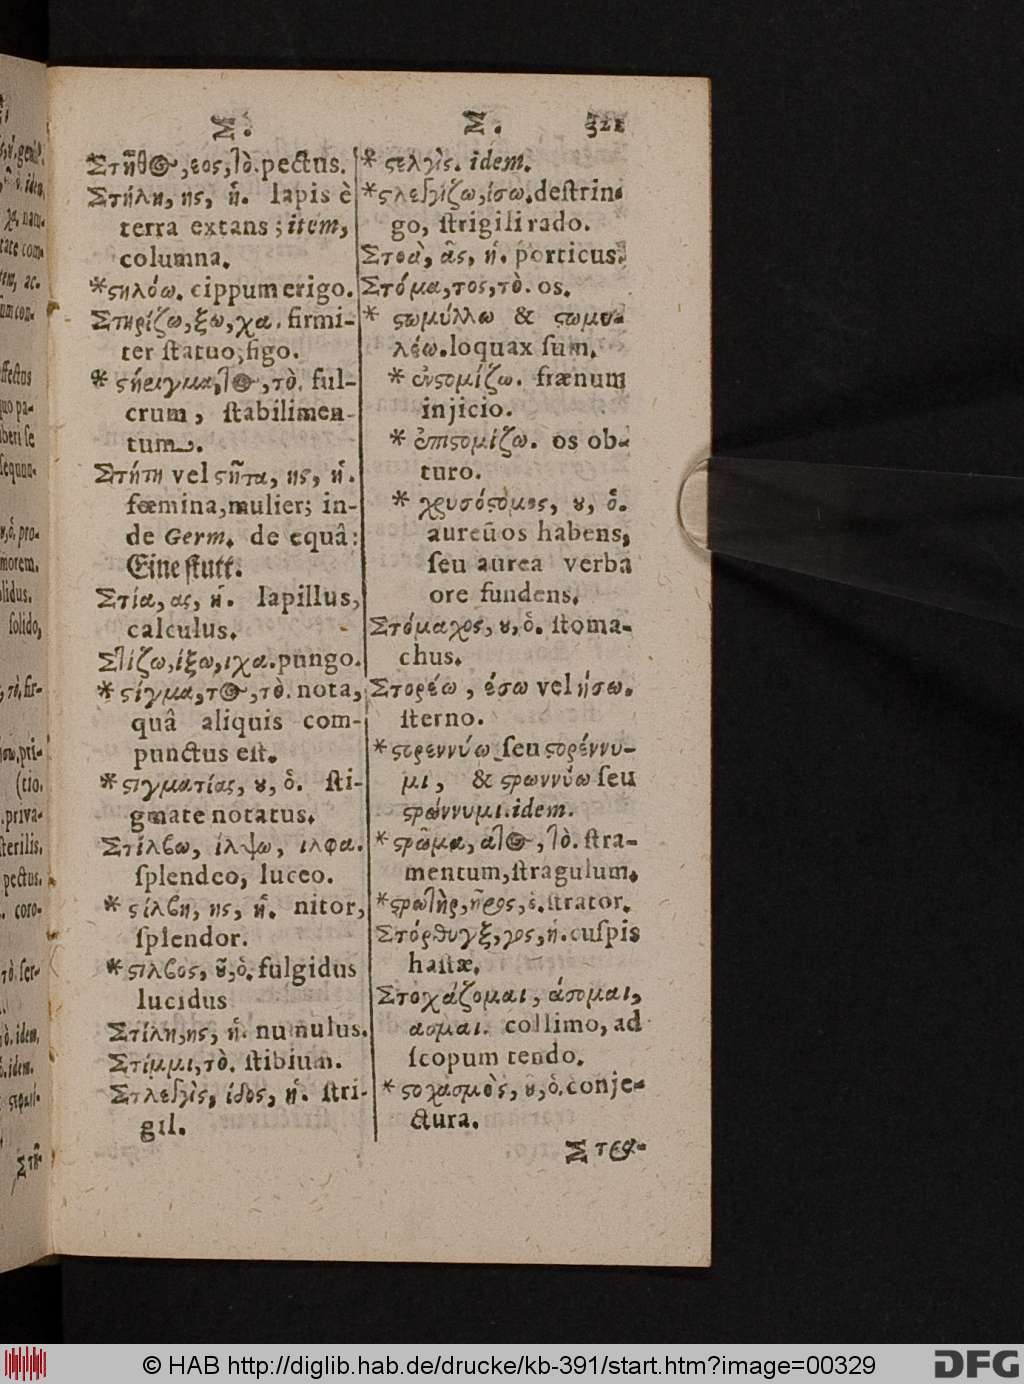 Σ. Σ. 321
Στῆθος, εος, τὸ. pectus.
Στήλη, ης, ἡ. lapis è
terra extans; item,
columna.
*στηλόω. cippum erigo.
Στηρίζω, ξω, χα. firmi-
ter statuo, figo.
* στήριγμα, τος, τὸ. ful-
crum, stabilimen-
tum.
Στήτη vel στῆτα, ης, ἡ.
fœmina, mulier; in-
de Germ. de equâ:
Eine stutt.
Στία, ας, ἡ. lapillus,
calculus.
Στίζω, ίξω, ιχα. pungo.
* στίγμα, τος, τὸ. nota,
quâ aliquis com-
punctus est.
* στιγματίας, ου, ὁ. sti-
gmate notatus.
Στίλβω, ίλψω, ιλφα.
splendeo, luceo.
* στίλβη, ης, ἡ. nitor,
splendor.
*στιλβος, οῦ, ὁ. fulgidus
lucidus
Στίλη, ης, ἡ. nummulus.
Στίμμι, τὸ. stibium.
Στλεγγὶς, ίδος, ἡ. stri-
gil.
* στελγὶς. idem.
*στλεγγίζω, ίσω. destrin-
go, strigili rado.
Στοὰ, ᾶς, ἡ. porticus.
Στόμα, τος, τὸ. os.
* στωμύλλω & στωμυ-
λέω. loquax sum.
* ἐνστομίζω. frænum
injicio.
* ἐπιστομίζω. os ob-
turo.
* χρυσόστομος, ου, ὁ.
aureũ os habens,
seu aurea verba
ore fundens.
Στόμαχος, ου, ὁ. stoma-
chus.
Στορέω, έσω vel ήσω.
sterno.
*στορεννύω seu στορέννυ-
μι, & στρωννύω seu
στρώννυμι. idem.
*στρῶμα, ατος, τὸ. stra-
mentum, stragulum.
*στρωτὴρ, ῆρος, ὁ. strator.
Στόρθυγξ, γος, ἡ. cuspis
hastæ.
Στοχάζομαι, άσομαι,
ασμαι. collimo, ad
scopum tendo.
* στοχασμὸς, οῦ, ὁ. conje-
ctura.
Στρα-
© HAB http://diglib.hab.de/drucke/kb-391/start.htm?image=00329
DFG